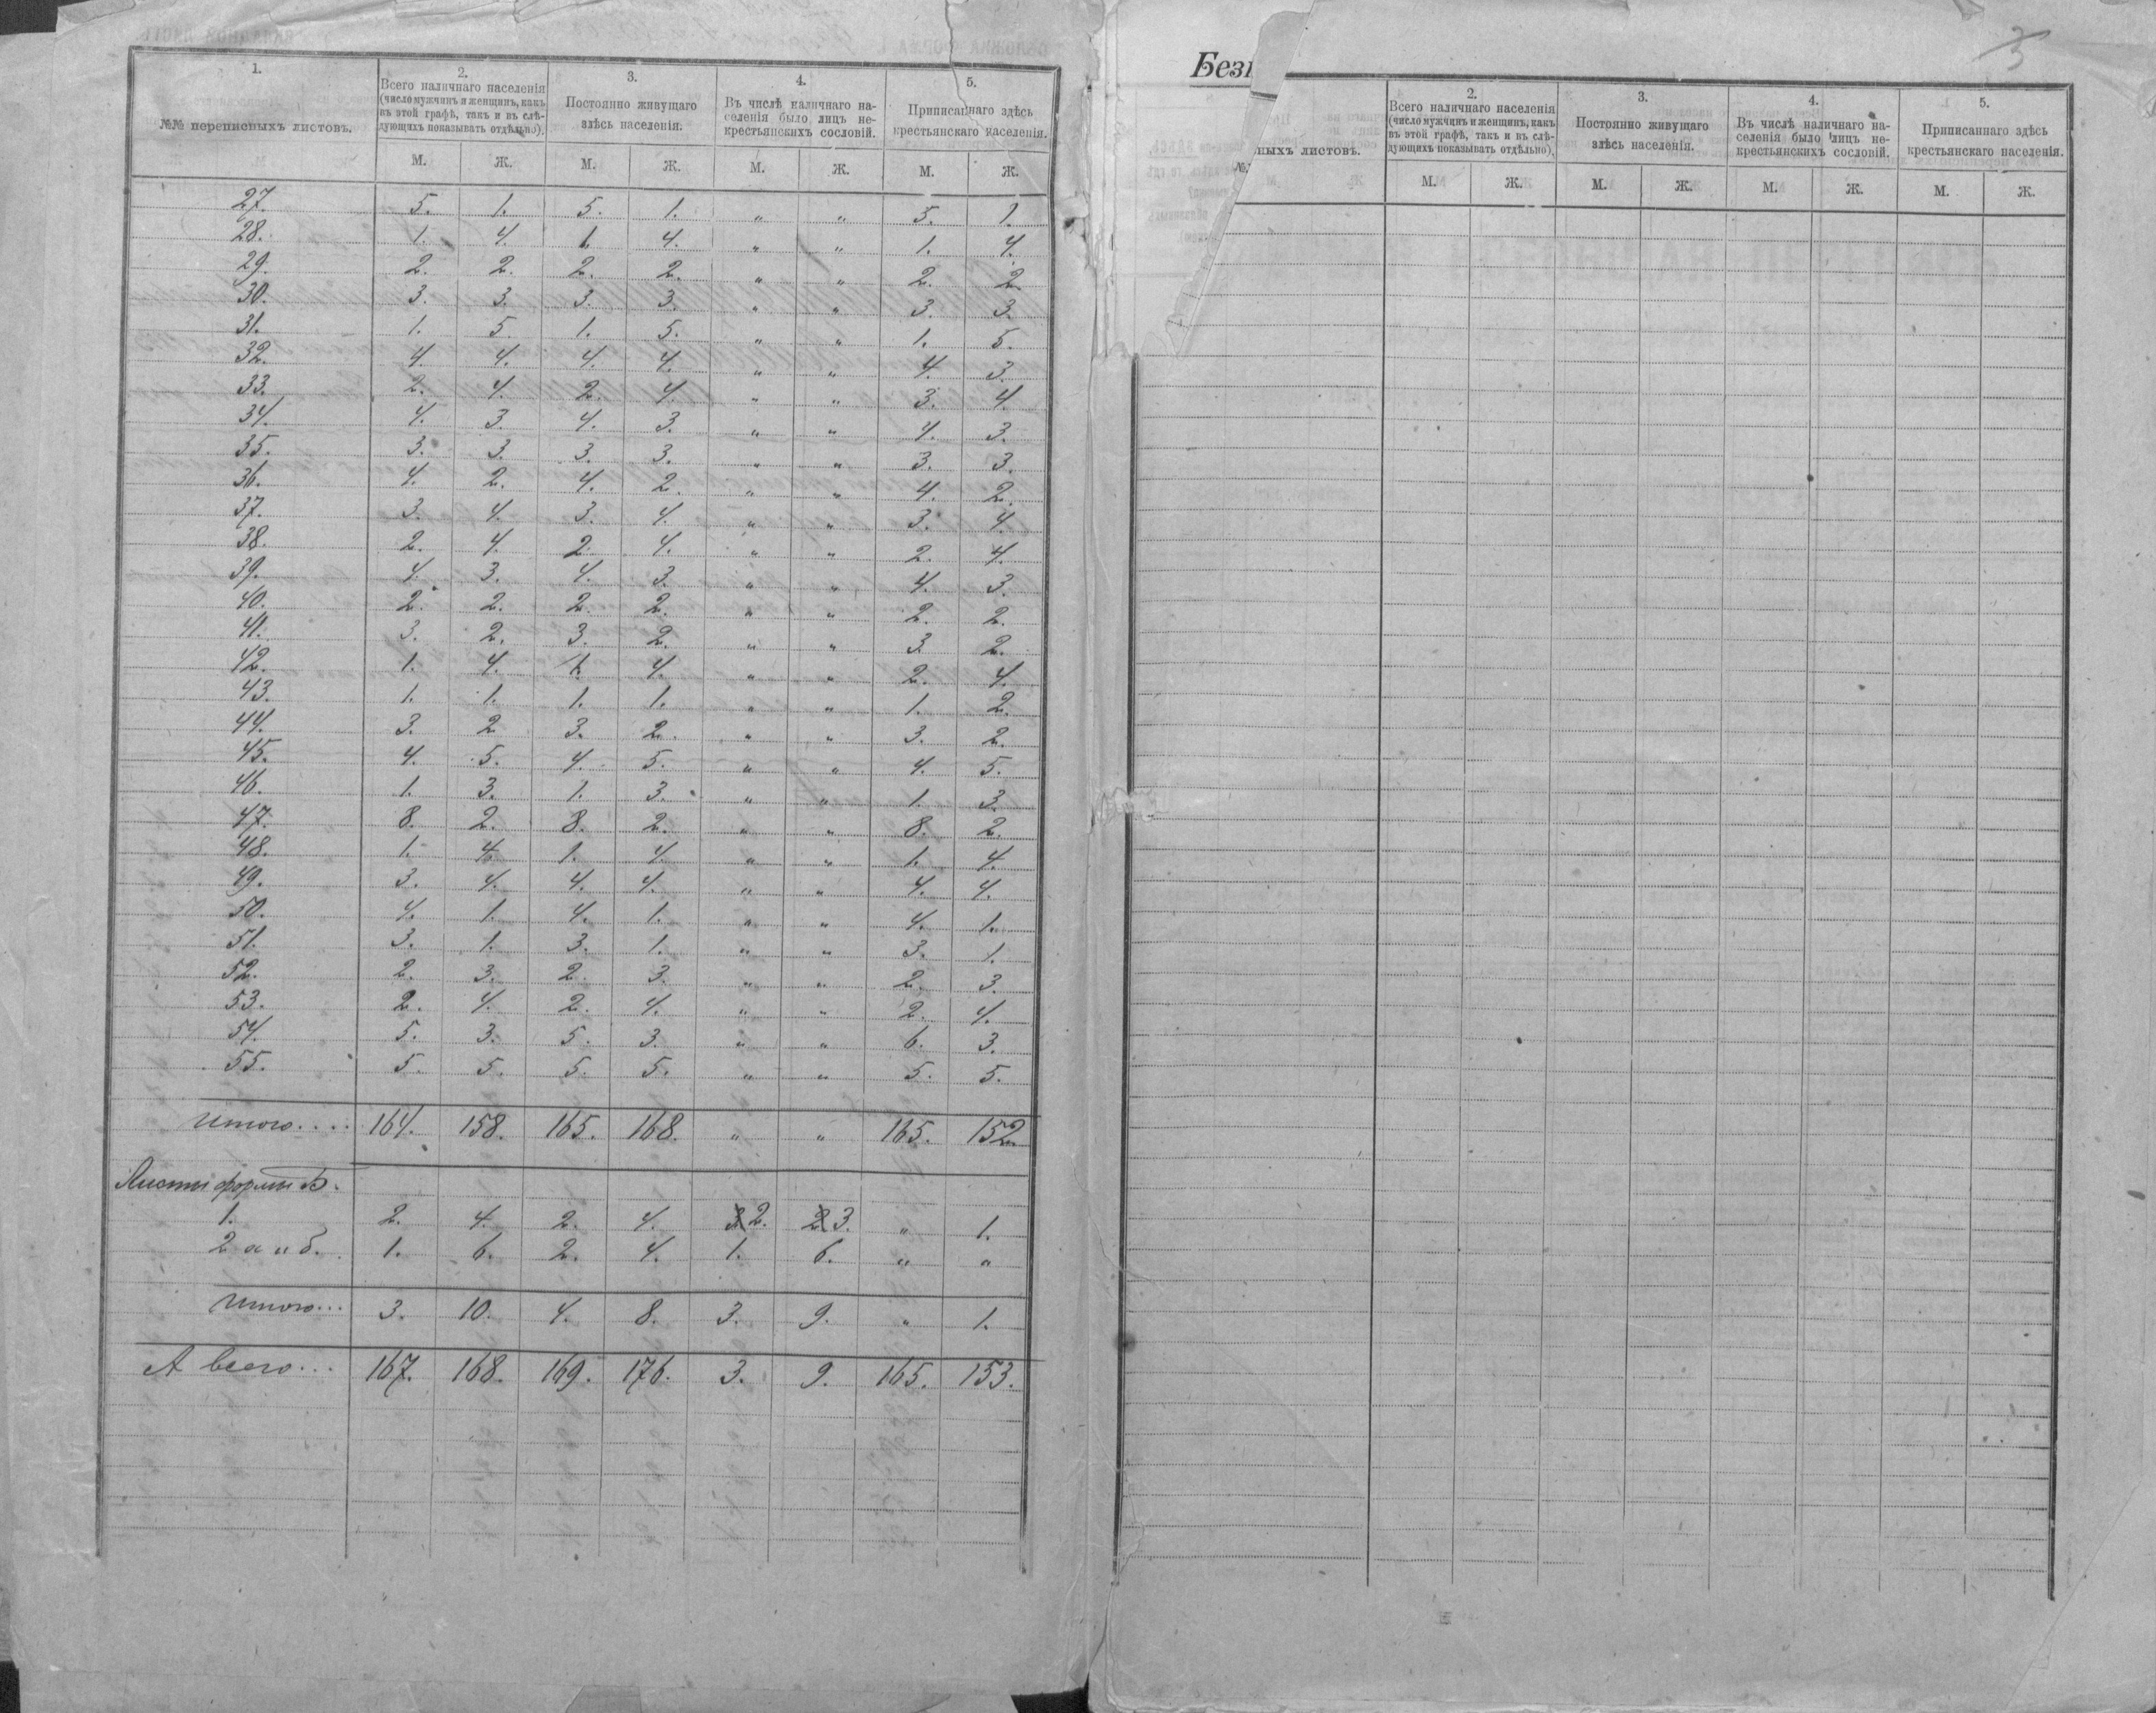 1. 2. 3. 4. 5.
№№ переписныхъ листовъ.
Всего наличнаго населенія
(число мужчинъ и женщинъ, какъ
въ этой графѣ, такъ и въ слѣ-
дующихъ показывать отдѣльно).
Постоянно живущаго
здѣсь населенія.
Въ числѣ наличнаго на-
селенія было лицъ не-
крестьянскихъ сословій.
Приписаннаго здѣсь
крестьянскаго населенія.
М. Ж. М. Ж. М. Ж. М. Ж.
27. 5. 1. 5. 1. „ „ 5. 1.
28. 1. 4. 1. 4. „ „ 1. 4.
29. 2. 2. 2. 2. „ „ 2. 2.
30. 3. 3. 3. 3. „ „ 3. 3.
31. 1. 5. 1. 5. „ „ 1. 5.
32. 4. 4. 4. 4. „ „ 4. 3.
33. 2. 4. 2. 4. „ „ 3. 4.
34. 4. 3. 4. 3. „ „ 4. 3.
35. 3. 3. 3. 3. „ „ 3. 3.
36. 4. 2. 4. 2. „ „ 4. 2.
37. 3. 4. 3. 4. „ „ 3. 4.
38. 2. 4. 2. 4. „ „ 2. 4.
39. 4. 3. 4. 3. „ „ 4. 3.
40. 2. 2. 2. 2. „ „ 2. 2.
41. 3. 2. 3. 2. „ „ 3. 2.
42. 1. 4. 1. 4. „ „ 2. 4.
43. 1. 1. 1. 1. „ „ 1. 2.
44. 3. 2. 3. 2. „ „ 3. 2.
45. 4. 5. 4. 5. „ „ 4. 5.
46. 1. 3. 1. 3. „ „ 1. 3.
47. 8. 2. 8. 2. „ „ 8. 2.
48. 1. 4. 1. 4. „ „ 1. 4.
49. 3. 4. 4. 4. „ „ 4. 4.
50. 4. 1. 4. 1. „ „ 4. 1.
51. 3. 1. 3. 1. „ „ 3. 1.
52. 2. 3. 2. 3. „ „ 2. 3.
53. 2. 4. 2. 4. „ „ 2. 4.
54. 5. 3. 5. 3. „ „ 6. 3.
55. 5. 5. 5. 5. „ „ 5. 5.
Итого.... 164. 158. 165. 168. „ „ 165. 152.
Листы формы Б.
1. 2. 4. 2. 4. 2. 3. „ 1.
2 а и б. 1. 6. 2. 4. 1. 6. „ „
Итого... 3. 10. 4. 8. 3. 9. „ 1.
А всего... 167. 168. 169. 176. 3. 9. 165. 153.
3
Безп
2. 3. 4. 5.
№
ныхъ листовъ.
Всего наличнаго населенія
(число мужчинъ и женщинъ, какъ
въ этой графѣ, такъ и въ слѣ-
дующихъ показывать отдѣльно).
Постоянно живущаго
здѣсь населенія.
Въ числѣ наличнаго на-
селенія было лицъ не-
крестьянскихъ сословій.
Приписаннаго здѣсь
крестьянскаго населенія.
М. Ж. М. Ж. М. Ж. М. Ж.